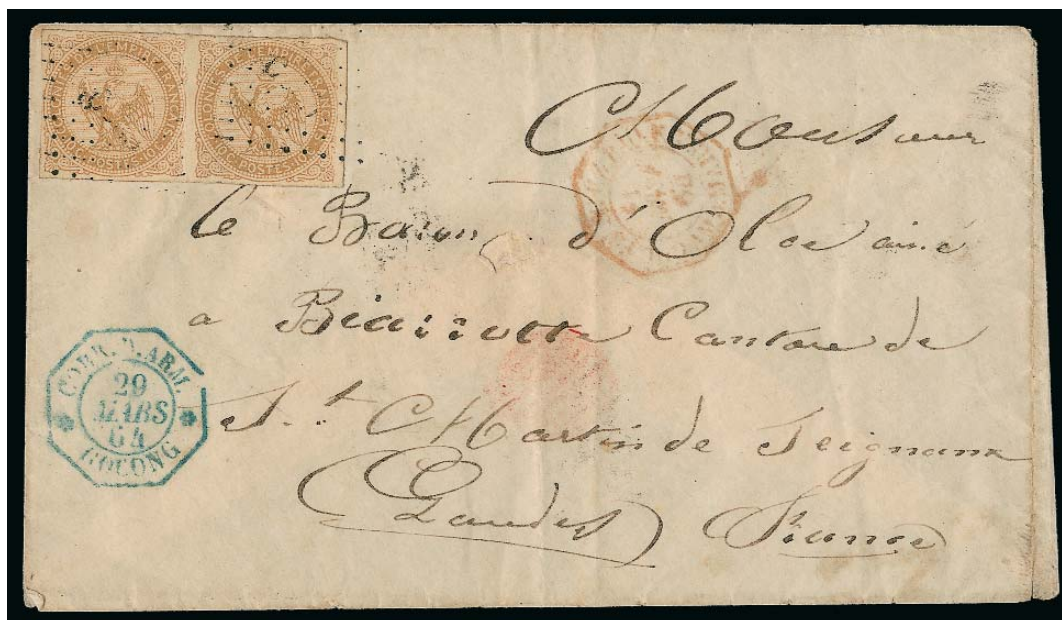 COLONIES DE L'EMPIRE FRANÇAIS
POSTES 10
COLONIES DE L'EMPIRE FRANÇAIS
POSTES 10
Monsieur
le Baron d'Olce ainé
a Biarrotte Canton de
St. Martin de Seignanx
Landes France
CORR. D. ARM.
29
MARS
64
GOCONG